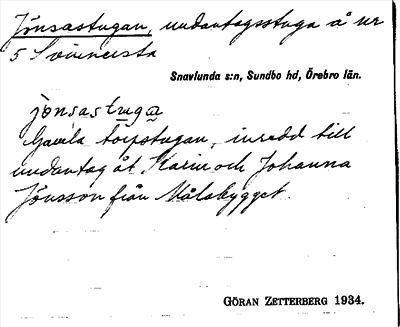 Jönsastugan, undantagsstuga å nr
5 Svinnersta
Snavlunda s:n, Sundbo hd, Örebro län.
jònsastugɑ
Gamla torpstugan, inredd till
undantag åt Karin och Johanna
Jönsson från Målabygget.
GÖRAN ZETTERBERG 1934.